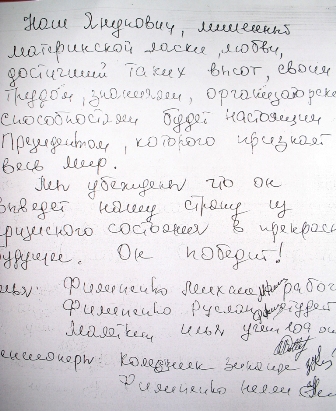 Наш Янукович, лишенный
материнской ласки, любви,
достигший таких высот, своим
трудом, знаниями, организаторски
способностями будет настоящим
Президентом, которого признает
весь мир.
Мы убеждены что он
выведет нашу страну из
кризисного состояния в прекрасн
будущее. Он победит!
Филипенко Михаил рабо
Филипенко Руслан студент
илья учен 109
енсионеры:
Филипенко Нелли